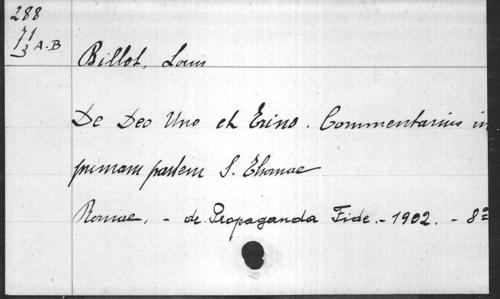 288
71
3 A-B
Billot, Louis
De Deo Uno et Trino. Commentarius in
primam partem S. Thomae
Romae, - de Propaganda Fide - 1902. - 8º